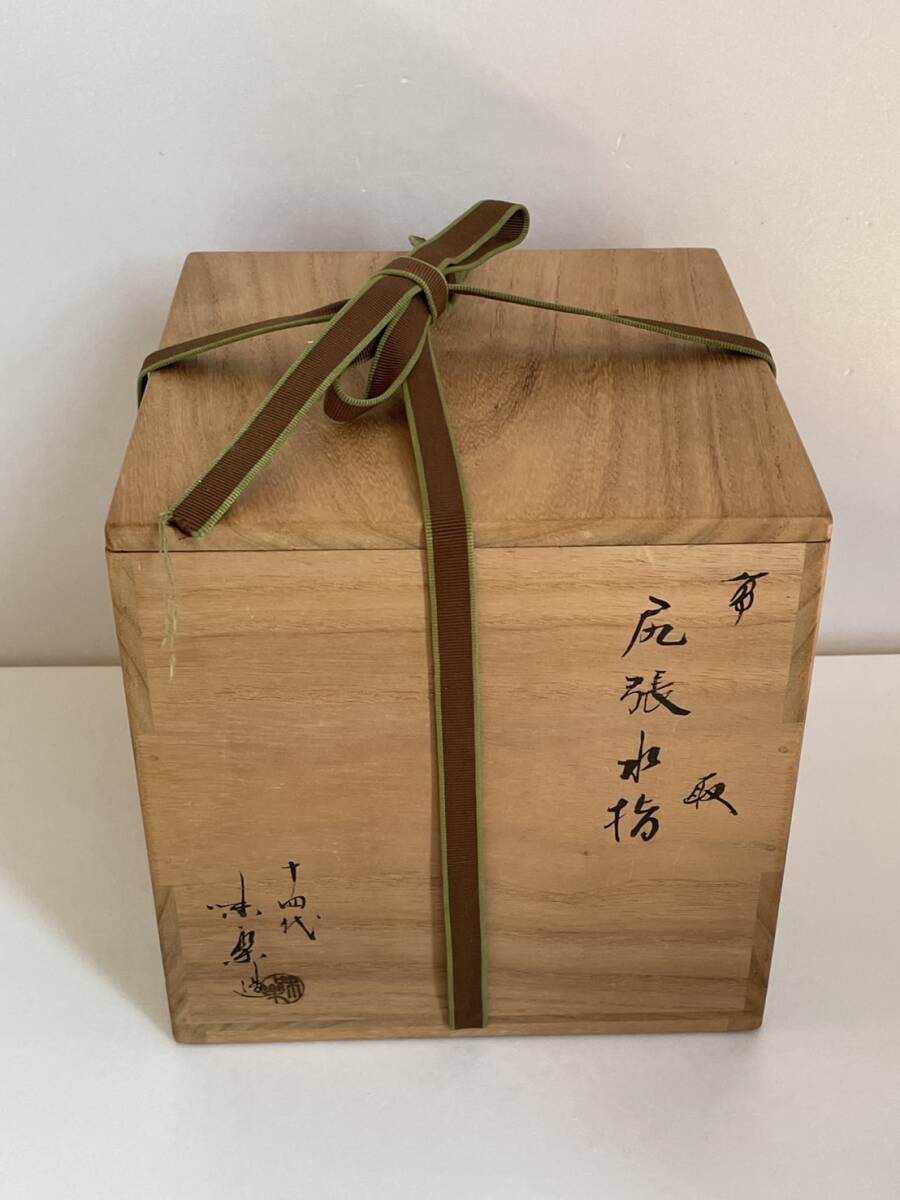 高取
尻張水指
十四代
味楽造